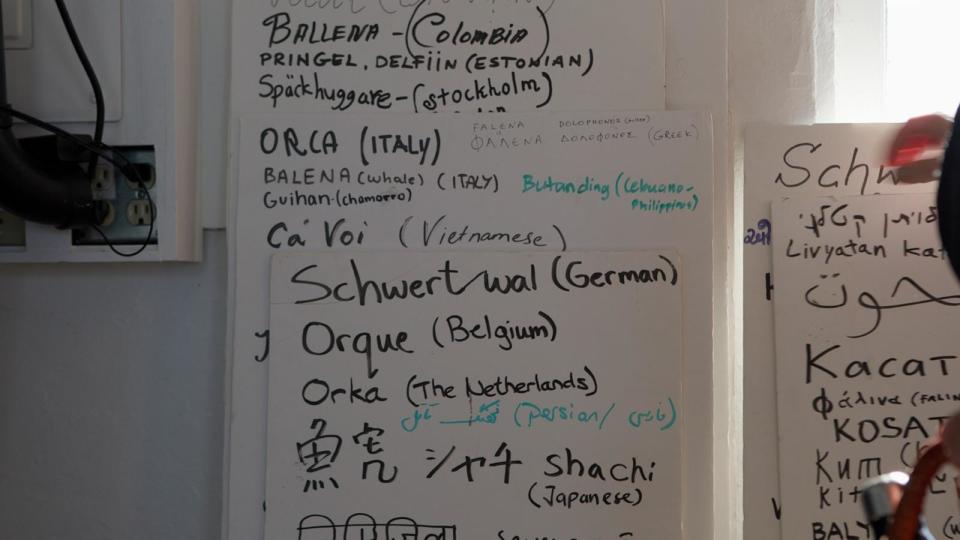 BALLENA - (Colombia)
PRINGEL, DELFIIN (ESTONIAN)
Späckhuggare - (stockholm)
ORCA (ITALY)
FALENA DOLOPHONOS
ΦΑΛΕΝΑ ΔΟΛΟΦΟΝΟΣ (GREEK)
BALENA (whale) (ITALY)
Butanding (Cebuano-
Philippines)
Guihan-(chamorro)
Cá Voi (Vietnamese)
Schwertwal (German)
Orque (Belgium)
Orka (The Netherlands)
(Persian/
シャチ shachi
(Japanese)
Schw
Livyatan
حوت
Касат
φάλαινα
KOSAT
Кит
Kit
BAL